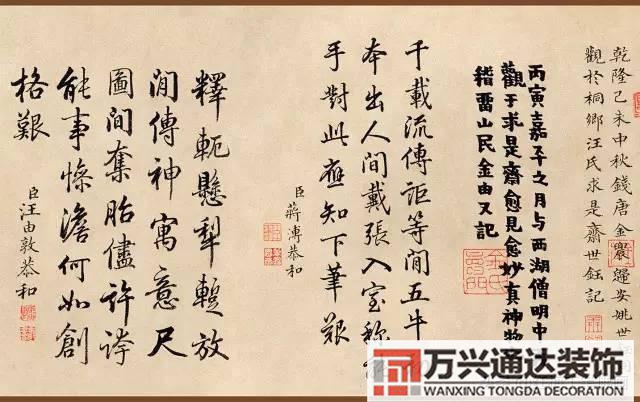 乾隆己未中秋錢唐金 歸安姚世
觀於桐鄉汪氏求是齋世鈺記
丙寅嘉平之月與西湖僧明中
觀于求是齋愈見愈妙真神物
稽畱山民金由又記
千載流傳詎等閒五牛
本出人間戴張入室稱
手對此應知下筆艱
臣蔣溥恭和
釋軛懸犁蹔放
閒傳神寓意尺
圖間奪胎儘許誇
能事慘澹何如創
格艱
臣汪由敦恭和
万兴通达装饰
WANXING TONGDA DECORATION